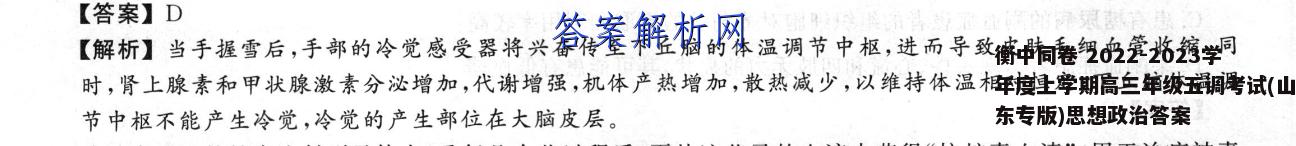 【答案】D
答案解析网
【解析】当手握雪后,手部的冷觉感受器将兴奋传至下丘脑的体温调节中枢,进而导致皮肤毛细血管收缩,同
时,肾上腺素和甲状腺激素分泌增加,代谢增强,机体产热增加,散热减少,以维持体温相
节中枢不能产生冷觉,冷觉的产生部位在大脑皮层。
衡中同卷 2022-2023学
年度上学期高三年级五调考试(山
东专版)思想政治答案